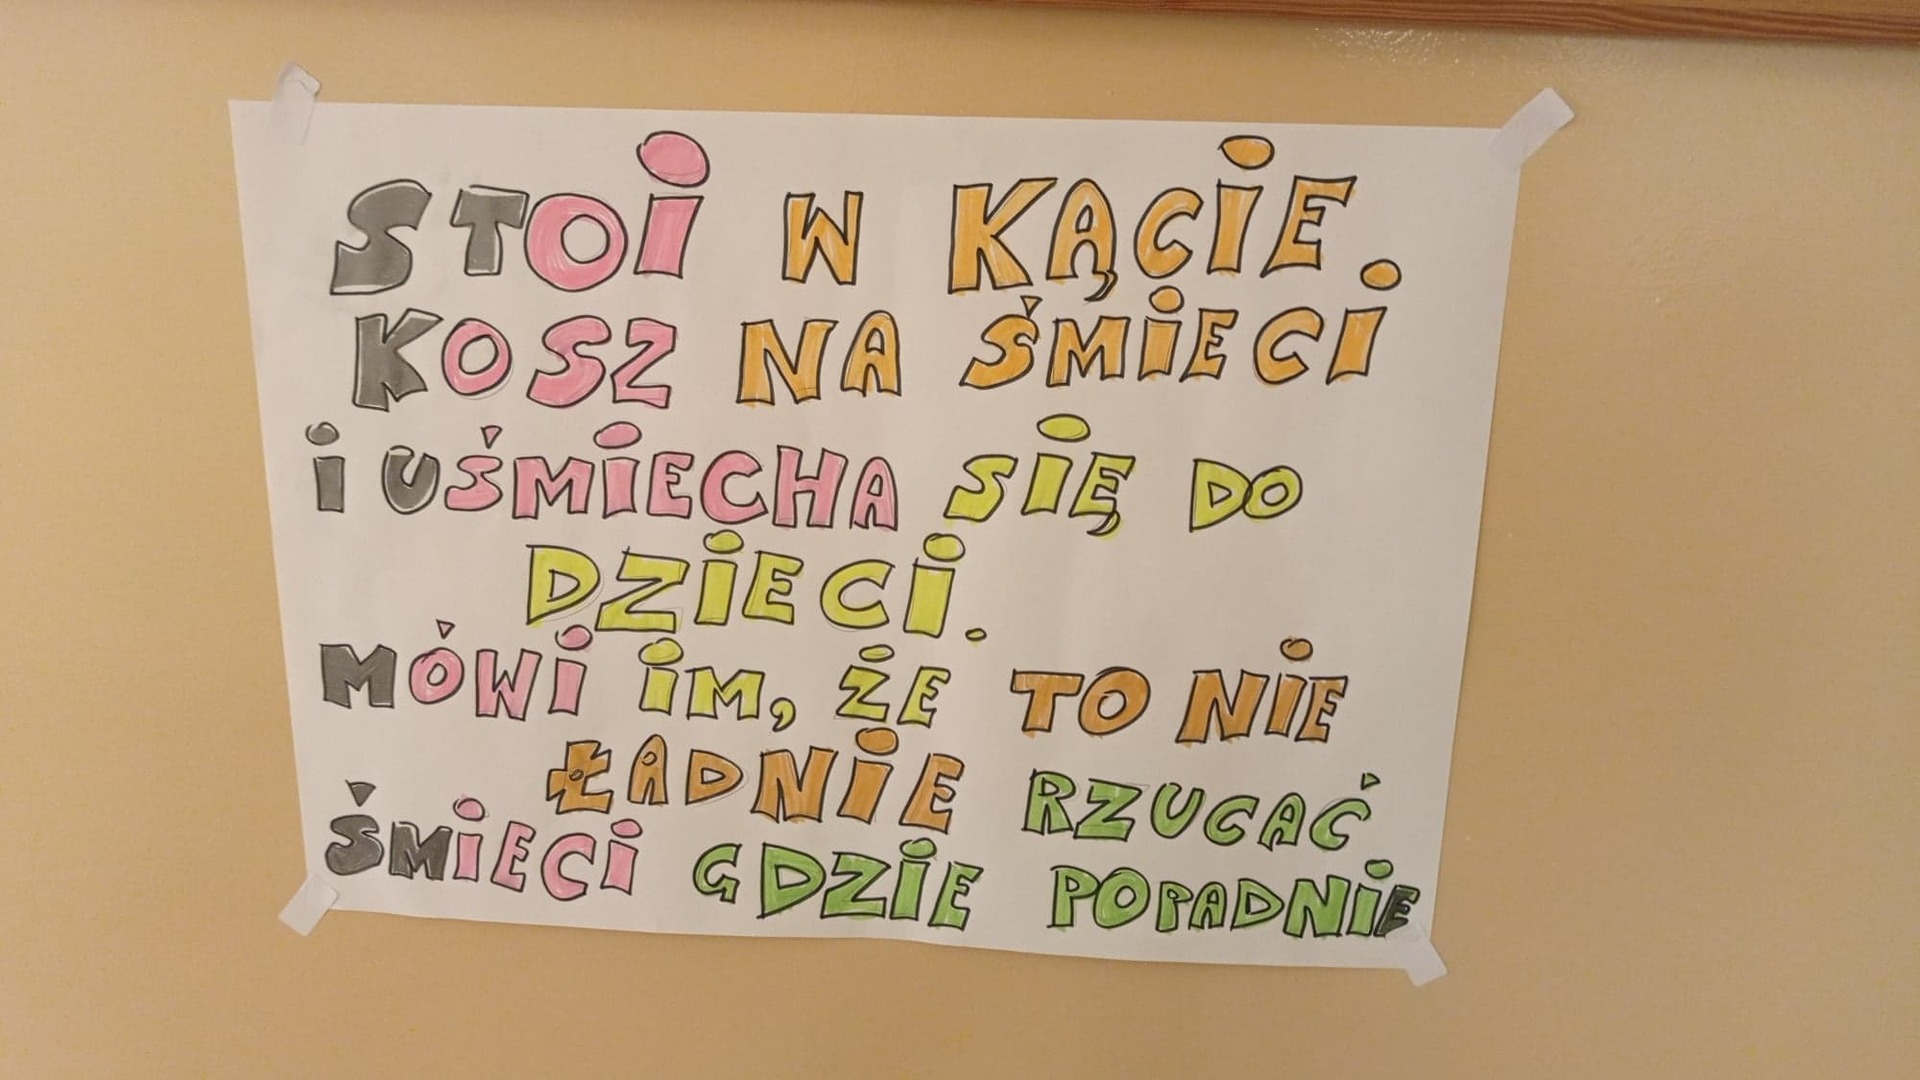 STOI W KĄCIE.
KOSZ NA ŚMIECI
i UŚMIECHA SIĘ DO
DZIECI.
MÓWI IM, ŻE TO NIE
ŁADNIE RZUCAĆ
ŚMIECI GDZIE POPADNIE